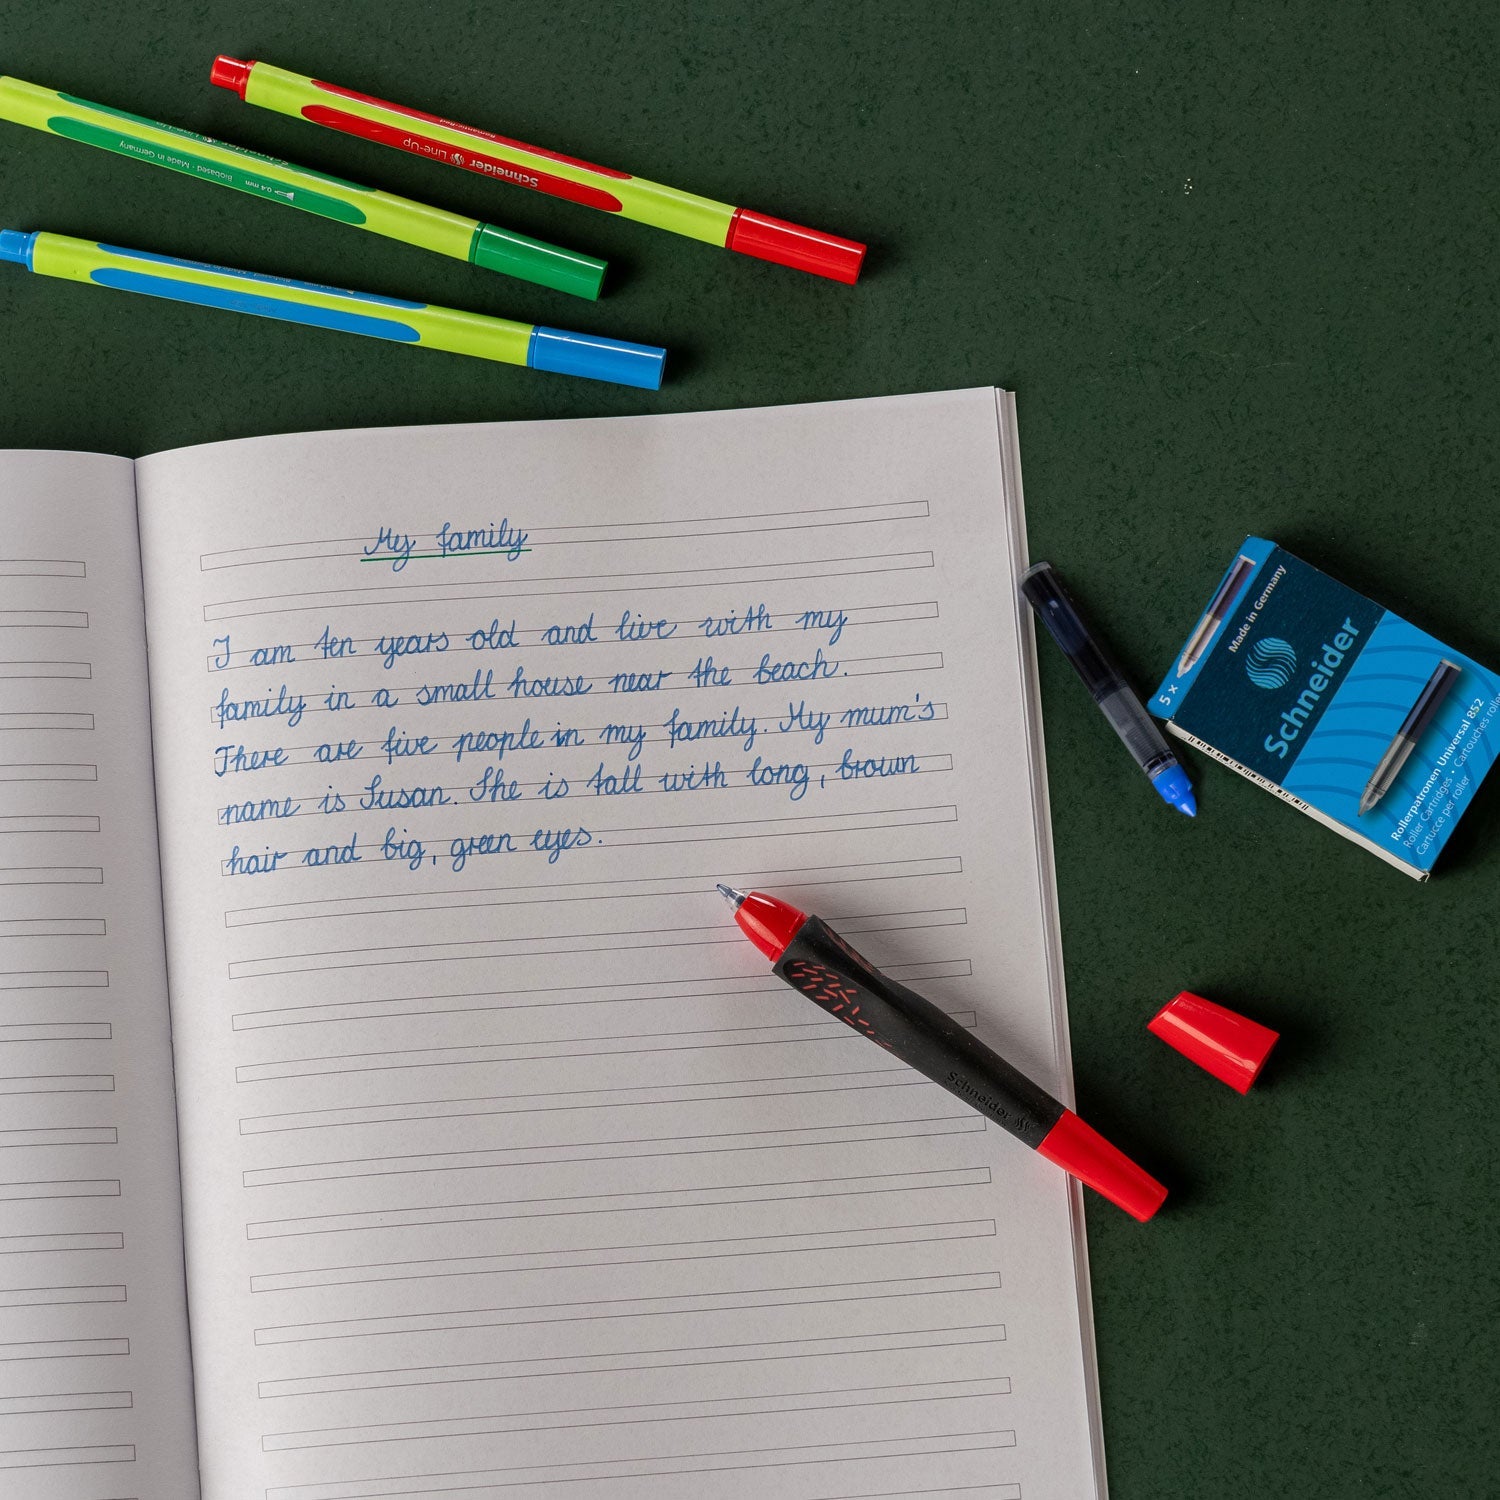 Schneider Line-Up
Romantic-Red
Schneider Line-Up
Biobased · Made in Germany
0.4 mm
My family
I am ten years old and live with my
family in a small house near the beach.
There are five people in my family. My mum's
name is Susan. She is tall with long, brown
hair and big, green eyes.
5 x
Made in Germany
Schneider
Rollerpatronen Universal 852
Roller Cartridges • Cartouches roller
Cartucce per roller
Schneider